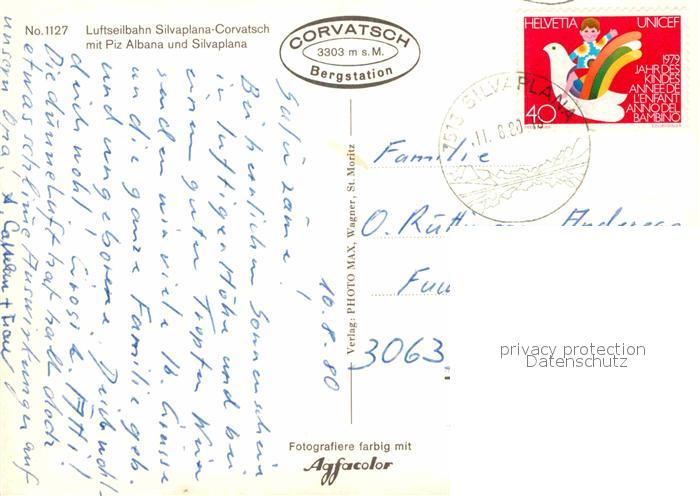 No. 1127 Luftseilbahn Silvaplana-Corvatsch
mit Piz Albana und Silvaplana
CORVATSCH
3303 m s.M.
Bergstation
HELVETIA UNICEF
1979
JAHR DES
KINDES
ANNÉE DE
L'ENFANT
ANNO DEL
BAMBINO
40
7513 SILVAPLANA
11. 8. 80
10. 8. 80
Bei herrlichem Sonnenschein
in luftiger Höhe und bei
einem guten Tropfen Wein
senden wir viele lb. Grüsse
an die ganze Familie geb.
und ungeborene
Die dünne Luft hat halt doch
etwas Auswirkungen auf
unsern Opa
Familie
O.
3063
Verlag: PHOTO MAX, Wagner, St. Moritz
Fotografiere farbig mit
Agfacolor
privacy protection
Datenschutz